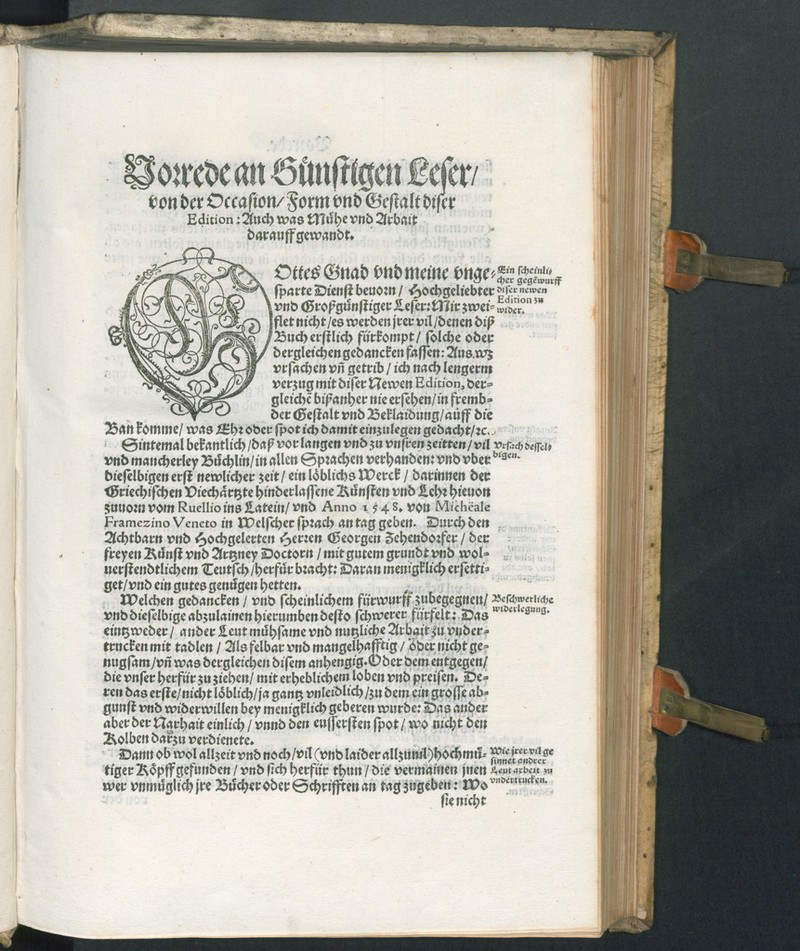 Vorrede an Günstigen Leser/
von der Occasion/ Form vnd Gestalt diser
Edition: Auch was Mühe vnd Arbait
darauff gewandt.
GOttes Gnad vnd meine vnge-
sparte Dienst beuorn / Hochgeliebter
vnd Großgünstiger Leser: Mir zwei-
flet nicht /es werden jrer vil /denen diß
Buch erstlich fürkompt / solche oder
dergleichen gedancken fassen: Aus wz
vrsachen vñ getrib / ich nach lengerm
verzug mit diser Newen Edition, der-
gleichē bißanher nie ersehen / in fremb-
der Gestalt vnd Bekleidung/ auff die
Ban komme/ was Ehr oder spot ich damit einzulegen gedacht/ꝛc.
Sintemal bekantlich /daß vor langen vnd zu vnsren zeitten/ vil
vnd mancherley Büchlin/ in allen Sprachen verhanden: vnd vber
dieselbigen erst newlicher zeit / ein löblichs Werck / darinnen der
Griechischen Viechärtzte hinderlassene Künsten vnd Lehr hieuon
zuuorn vom Ruellio ins Latein/ vnd Anno 1548. von Michēale
Framezino Veneto in Welscher sprach an tag geben. Durch den
Achtbarn vnd Hochgelerten Herren Georgen Zehendorfer / der
freyen Künst vnd Artzney Doctorn / mit gutem grundt vnd wol-
uerstendtlichem Teutsch /herfür bracht: Daran menigklich ersetti-
get/ vnd ein gutes genügen hetten.
Welchen gedancken / vnd scheinlichem fürwurff zubegegnen/
vnd dieselbige abzulainen hierumben desto schwerer fürfelt: Das
eintzweder / ander Leut mühsame vnd nutzliche Arbait zu vnder-
trucken mit tadlen / Als felbar vnd mangelhafftig / oder nicht ge-
nugsam /vñ was dergleichen disem anhengig. Oder dem entgegen/
die vnser herfür zu ziehen/ mit erheblichem loben vnd preisen. De-
ren das erste /nicht löblich/ja gantz vnleidlich /zu dem ein grosse ab-
gunst vnd widerwillen bey menigklich geberen wurde: Das ander
aber der Narhait einlich / vnnd den eussersten spot / wo nicht den
Kolben darzu verdienete.
Dann ob wol allzeit vnd noch /vil (vnd laider allzuuil)hochmü-
tiger Köpff gefunden / vnd sich herfür thun / die vermainen jnen
wer vnmüglich jre Bücher oder Schrifften an tag zugeben: Wo
sie nicht
Ein scheinli-
cher gegēwurff
diser newen
Edition zu
wider.
Vrsach dessel-
bigen.
Beschwerliche
widerlegung.
Wie jrer vil ge
sinnet andrer
Leut arbeit zu
vndertrucken.